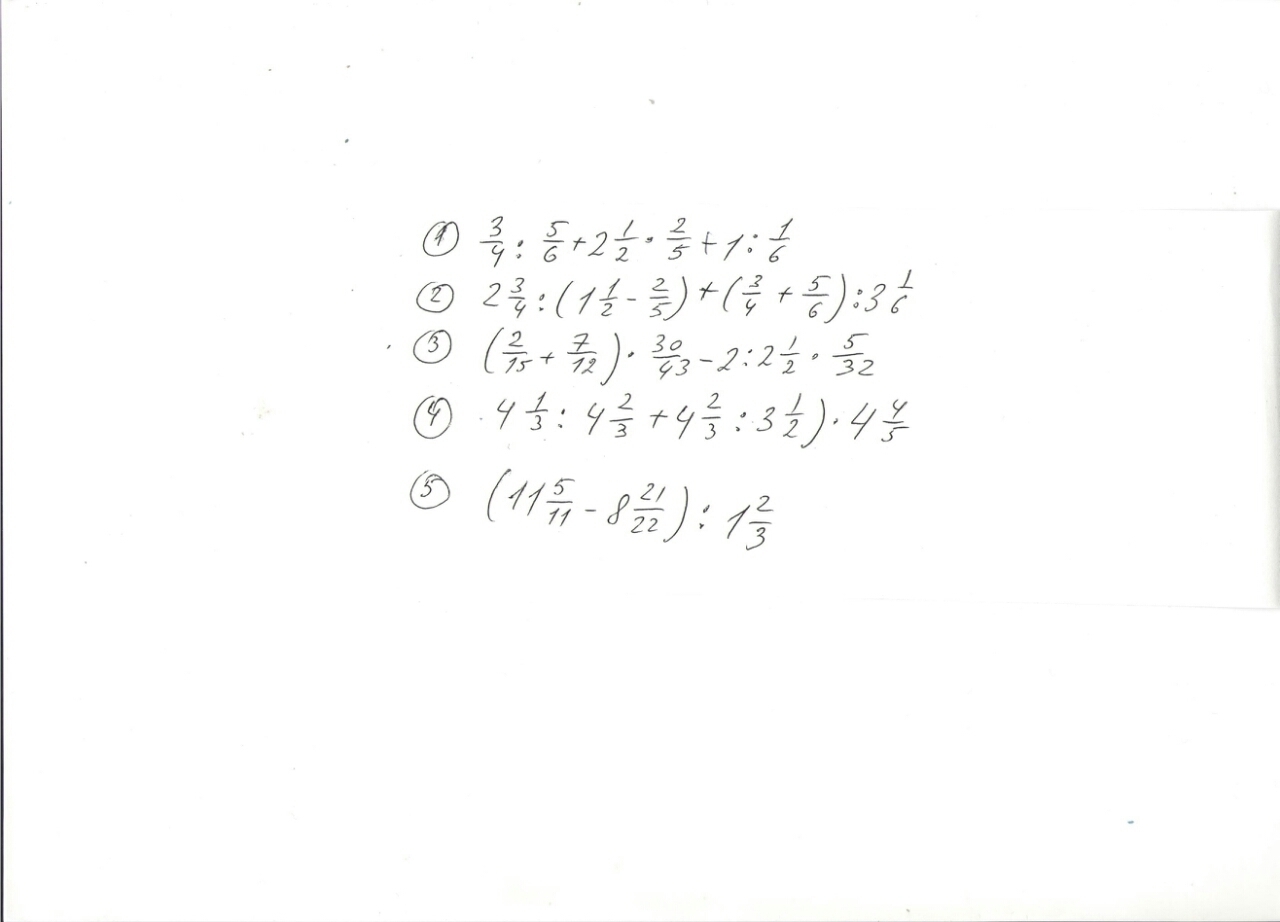 ① 3/4 : 5/6 + 2 1/2 · 2/5 + 1 : 1/6
② 2 3/4 : (1 1/2 - 2/5) + (3/4 + 5/6) : 3 1/6
③ (2/15 + 7/12) · 30/43 - 2 : 2 1/2 · 5/32
④ 4 1/3 : 4 2/3 + 4 2/3 : 3 1/2) · 4 4/5
⑤ (11 5/11 - 8 21/22) : 1 2/3